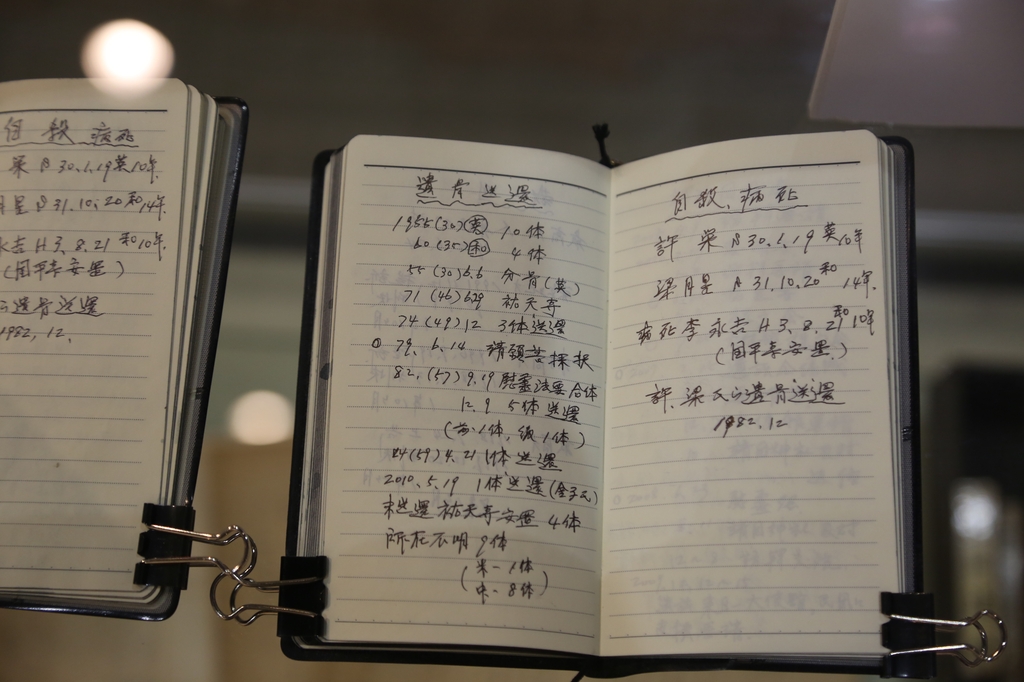 自殺 病死
栄 S 30.1.19 英 10年
月星 S 31.10.20 和 14年
永吉 H 3.8.21 和 10年
(国平寺安置)
遺骨送還
1982.12.
遺骨送還
1955(30) 英 10体
60(35) 和 4体
55(30)6.6 分骨(英)
71(46) 祐天寺
74(49)12 3体送還
79.6.14 請願書採択
82.(57)9.19 慰霊法要合体
12.9 5体送還
1体, 1体)
84(59)4.21 体送還
2010.5.19 1体送還(金子氏)
未送還 祐天寺安置 4体
所在不明 9体
(米-1体
中-8体)
自殺, 病死
許 栄 S 30.1.19 英 10年
梁月星 S 31.10.20 和 14年.
病死 李永吉 H 3.8.21 和 10年
(国平寺安置.)
許, 梁氏の遺骨送還
1982.12